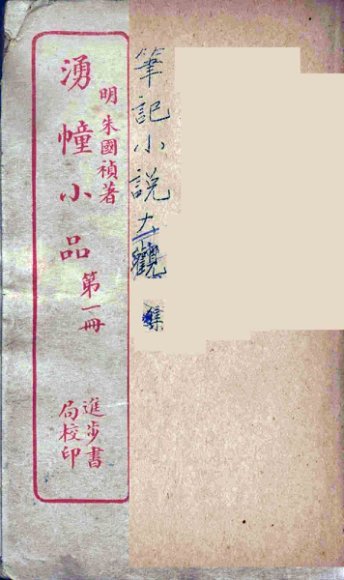 筆記小說大觀
明朱國禎著
湧幢小品 第一冊
進步書
局校印